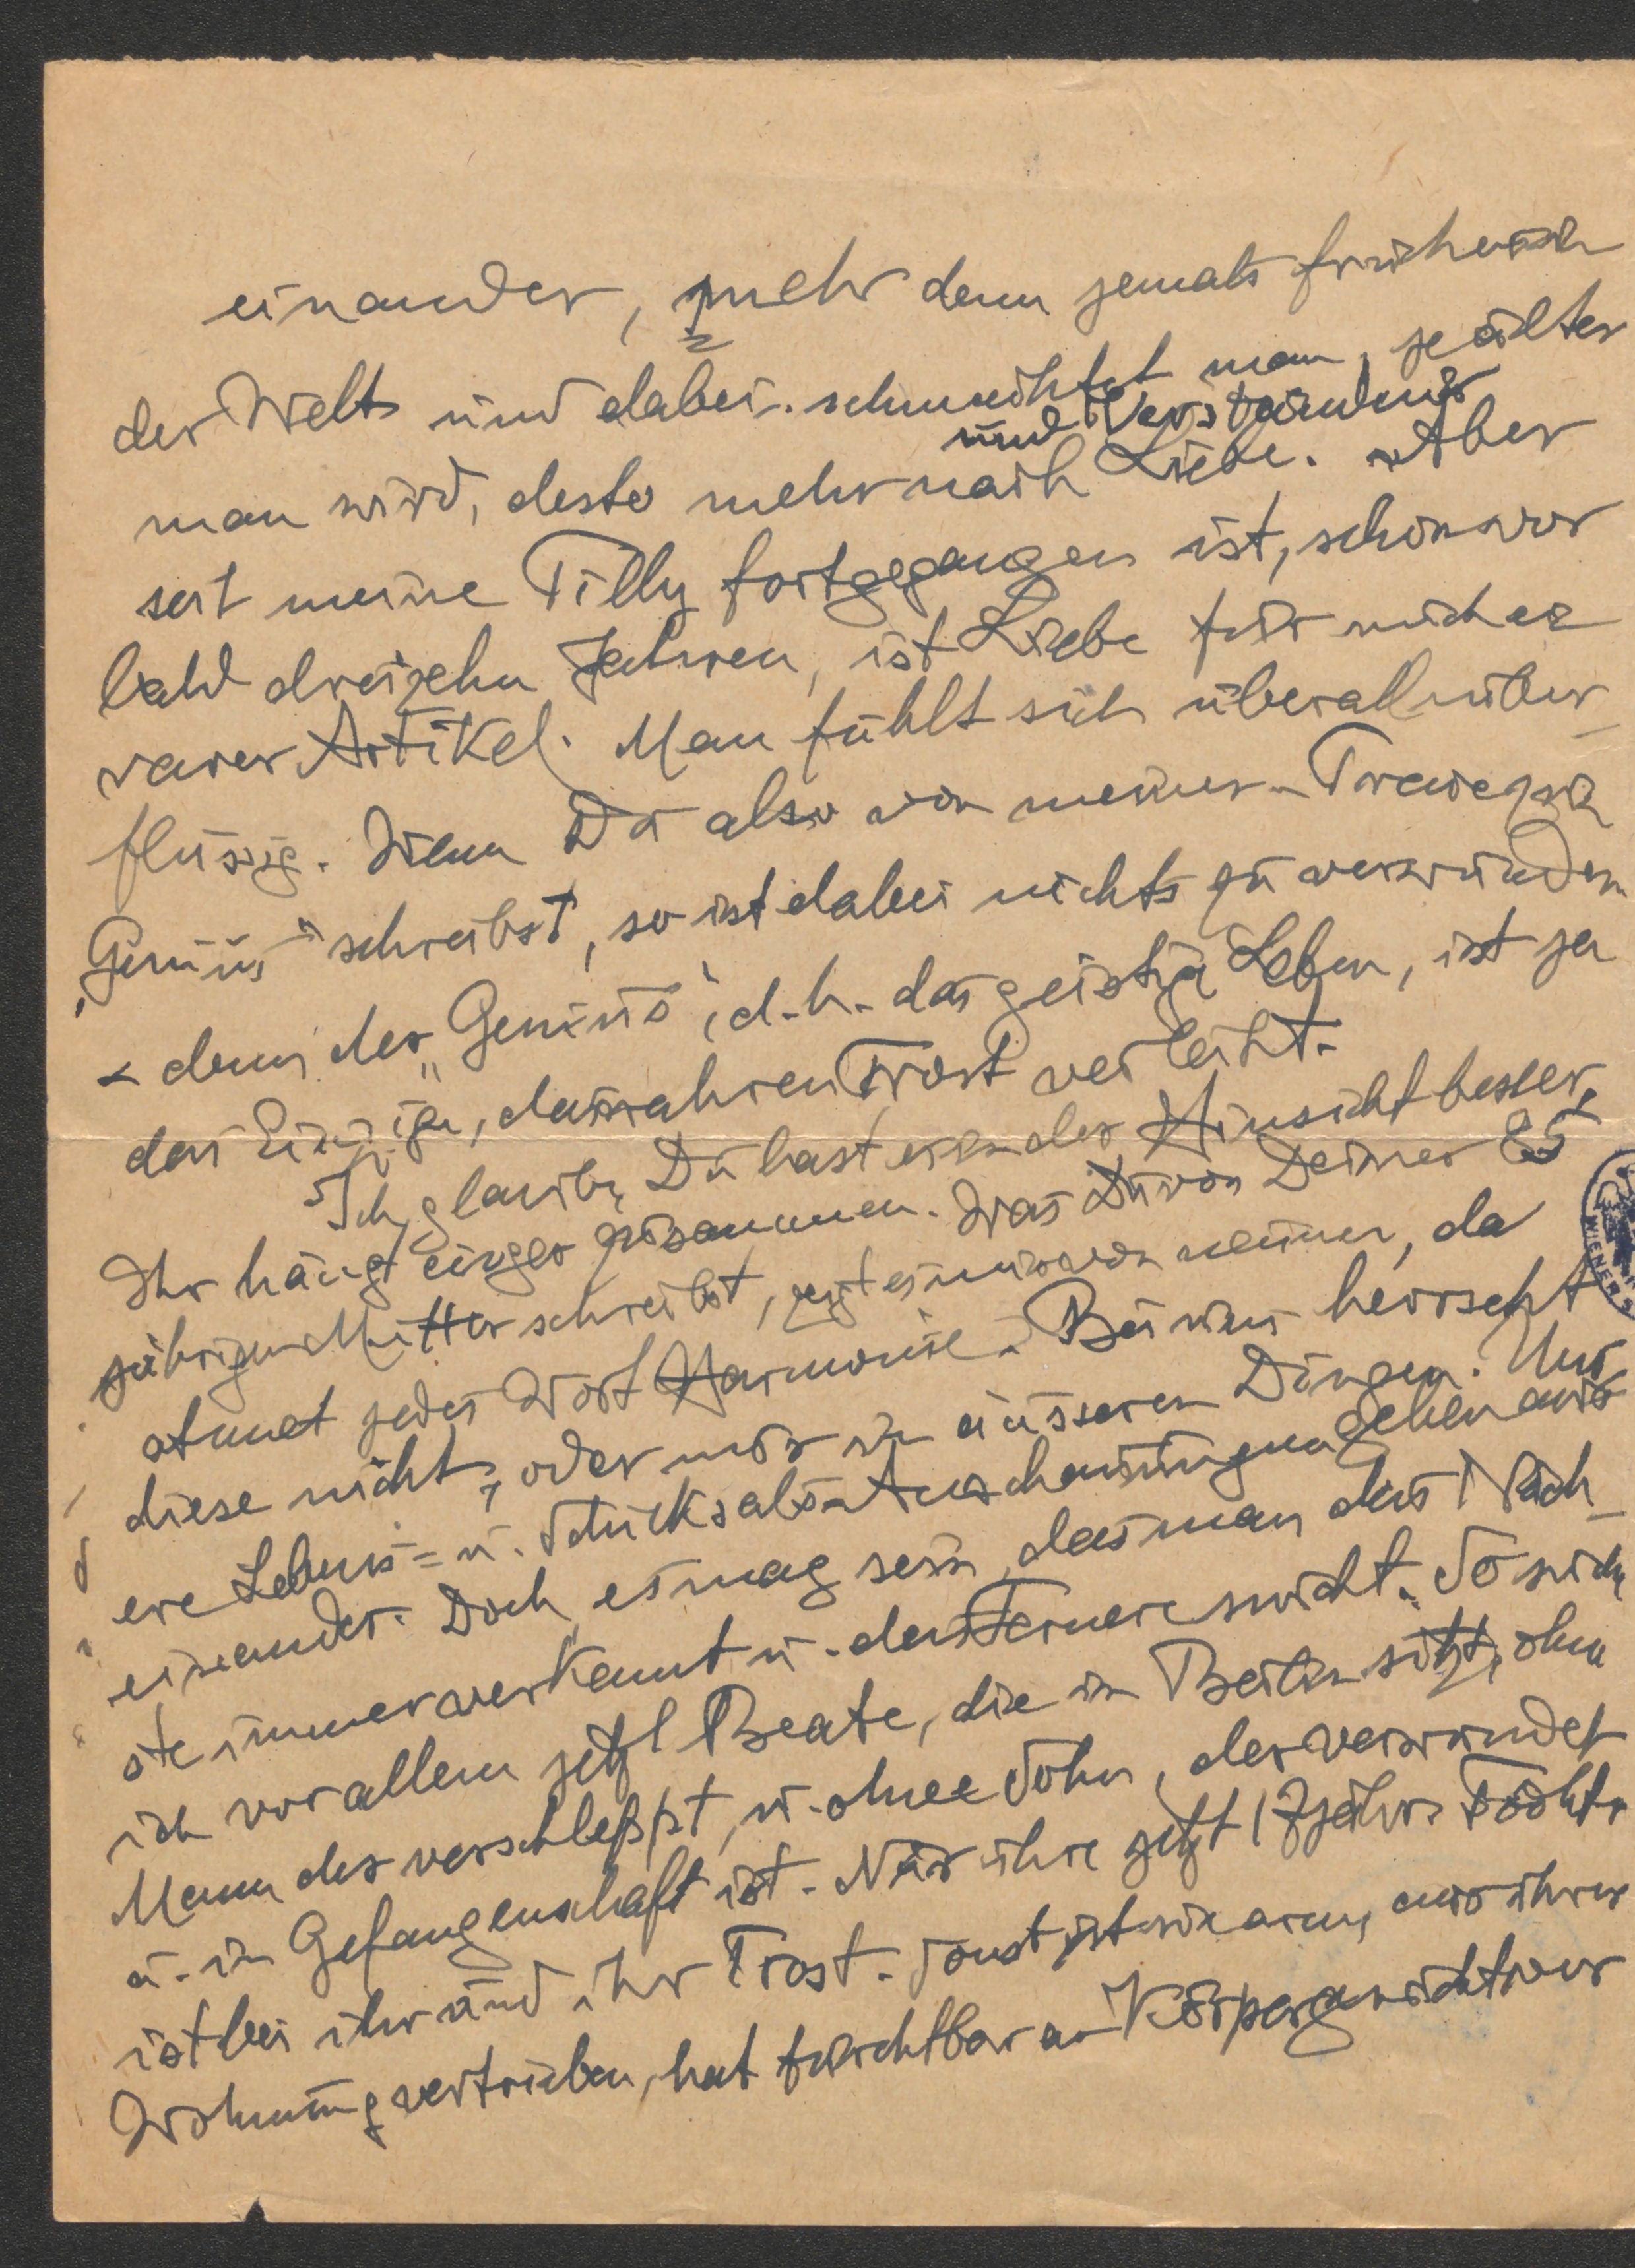 einander, mehr denn jemals früher in
der Welt und dabei schmachtet man, je älter
und Verständnis
man wird, desto mehr nach Liebe. Aber
seit meine Tilly fortgegangen ist, schon vor
bald dreizehn Jahren, ist Liebe für mich ein
rarer Artikel. Man fühlt sich überall über-
flüssig. Wenn Du also von meinem
„Genius" schreibst, so ist dabei nichts zu verwundern
denn der „Genius", d. h. das geistige Leben, ist ja
das Einzige, das wahren Trost verleiht.
Ich glaube, Du hast es in der Hinsicht besser,
Ihr hängt enger zusammen. Was Du von Deiner 85
jährigen Mutter schreibst, zeigt es mir von neuem, da
atmet jedes Wort Harmonie. Bei uns herrscht
diese nicht, oder nur in äusseren Dingen. Uns-
ere Lebens- u. Schicksals-Anschauungen gehen aus
einander. Doch es mag sein, dass man das Näch-
ste immer verkennt u. das Fernere sucht. So suche
ich vor allem jetzt Beate, die in Berlin sitzt, ohne
Mann der verschleppt, u. ohne Sohn, der verwundet
u. in Gefangenschaft ist. Nur ihre jetzt 17jähr. Tochter
ist bei ihr und ihr Trost. Sonst ist sie arm, aus ihrer
Wohnung vertrieben, hat furchtbar an Körpergewicht ver
WIENER